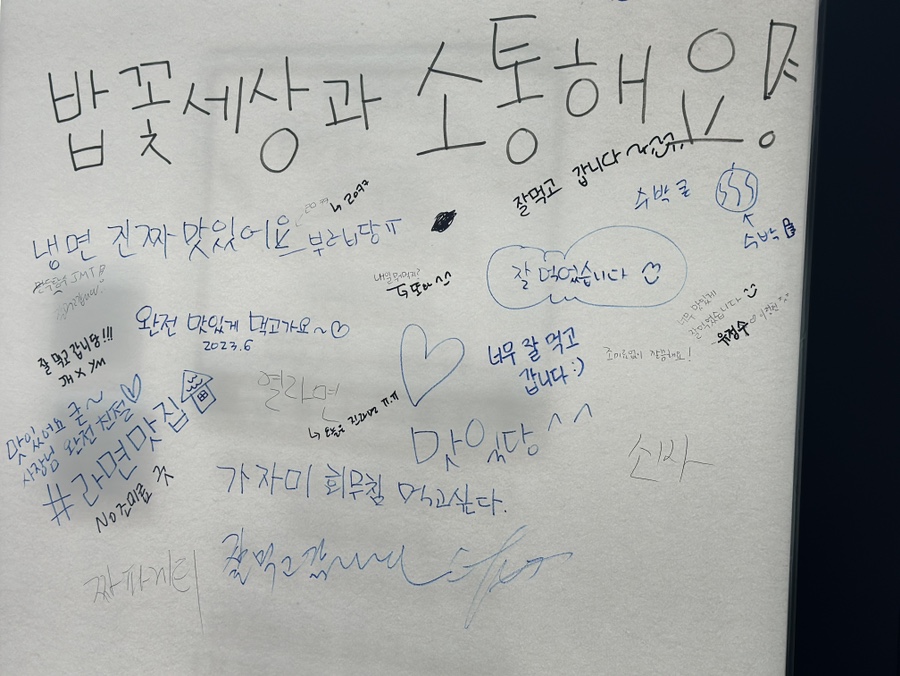 밥꽃세상과 소통해요
잘먹고 갑니다~
↳ 20??
수박 굳
수박
냉면 진짜 맛있어요 부러니당ㅠ
잘 먹었습니다
내일 또 먹지?
또또아^^
완전 맛있게 먹고가요~♡
2023.6
잘 먹고 갑니당!!!
너무 잘 먹고
갑니다:)
너무 맛있게
잘먹었습니다
유정수
조미료없이 깔끔해요!
열라면
↳ 오늘은 진라면 ㅠ.ㅠ
맛있어요 굳~
사장님 완전 친절♡
#라면맛집
No조미료 굿
맛있당^^
신싸
가자미 회무침 먹고싶다.
짜파게티
잘먹고갑니다